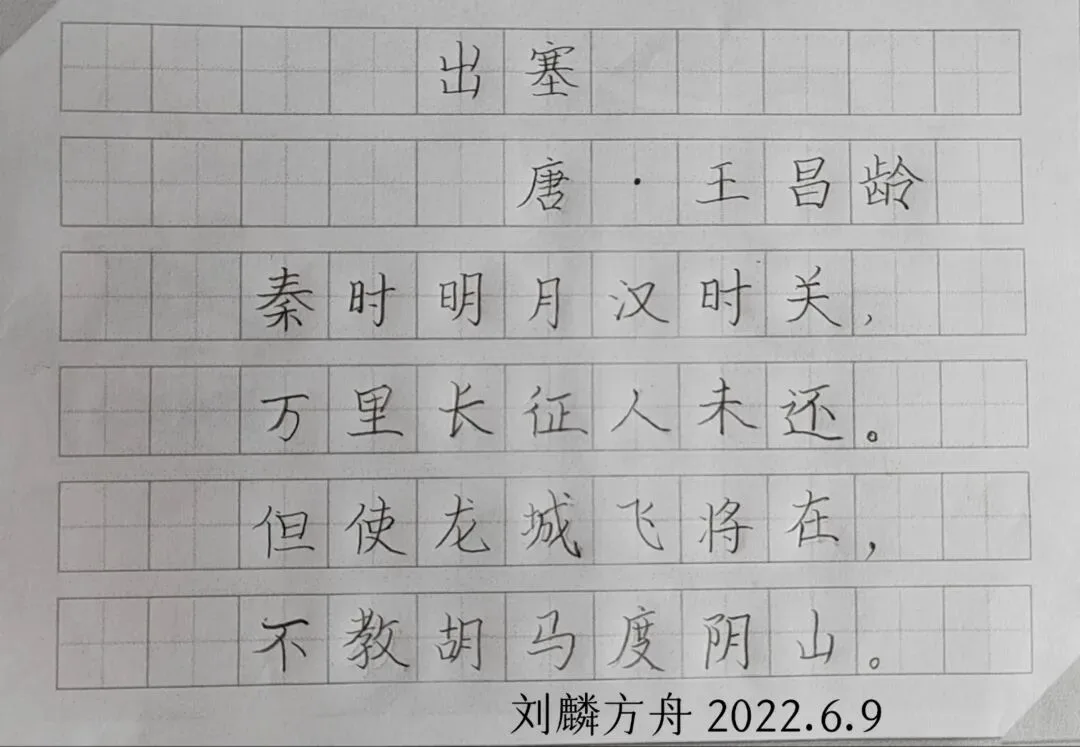 出塞
唐·王昌龄
秦时明月汉时关,
万里长征人未还。
但使龙城飞将在,
不教胡马度阴山。
刘麟方舟 2022.6.9